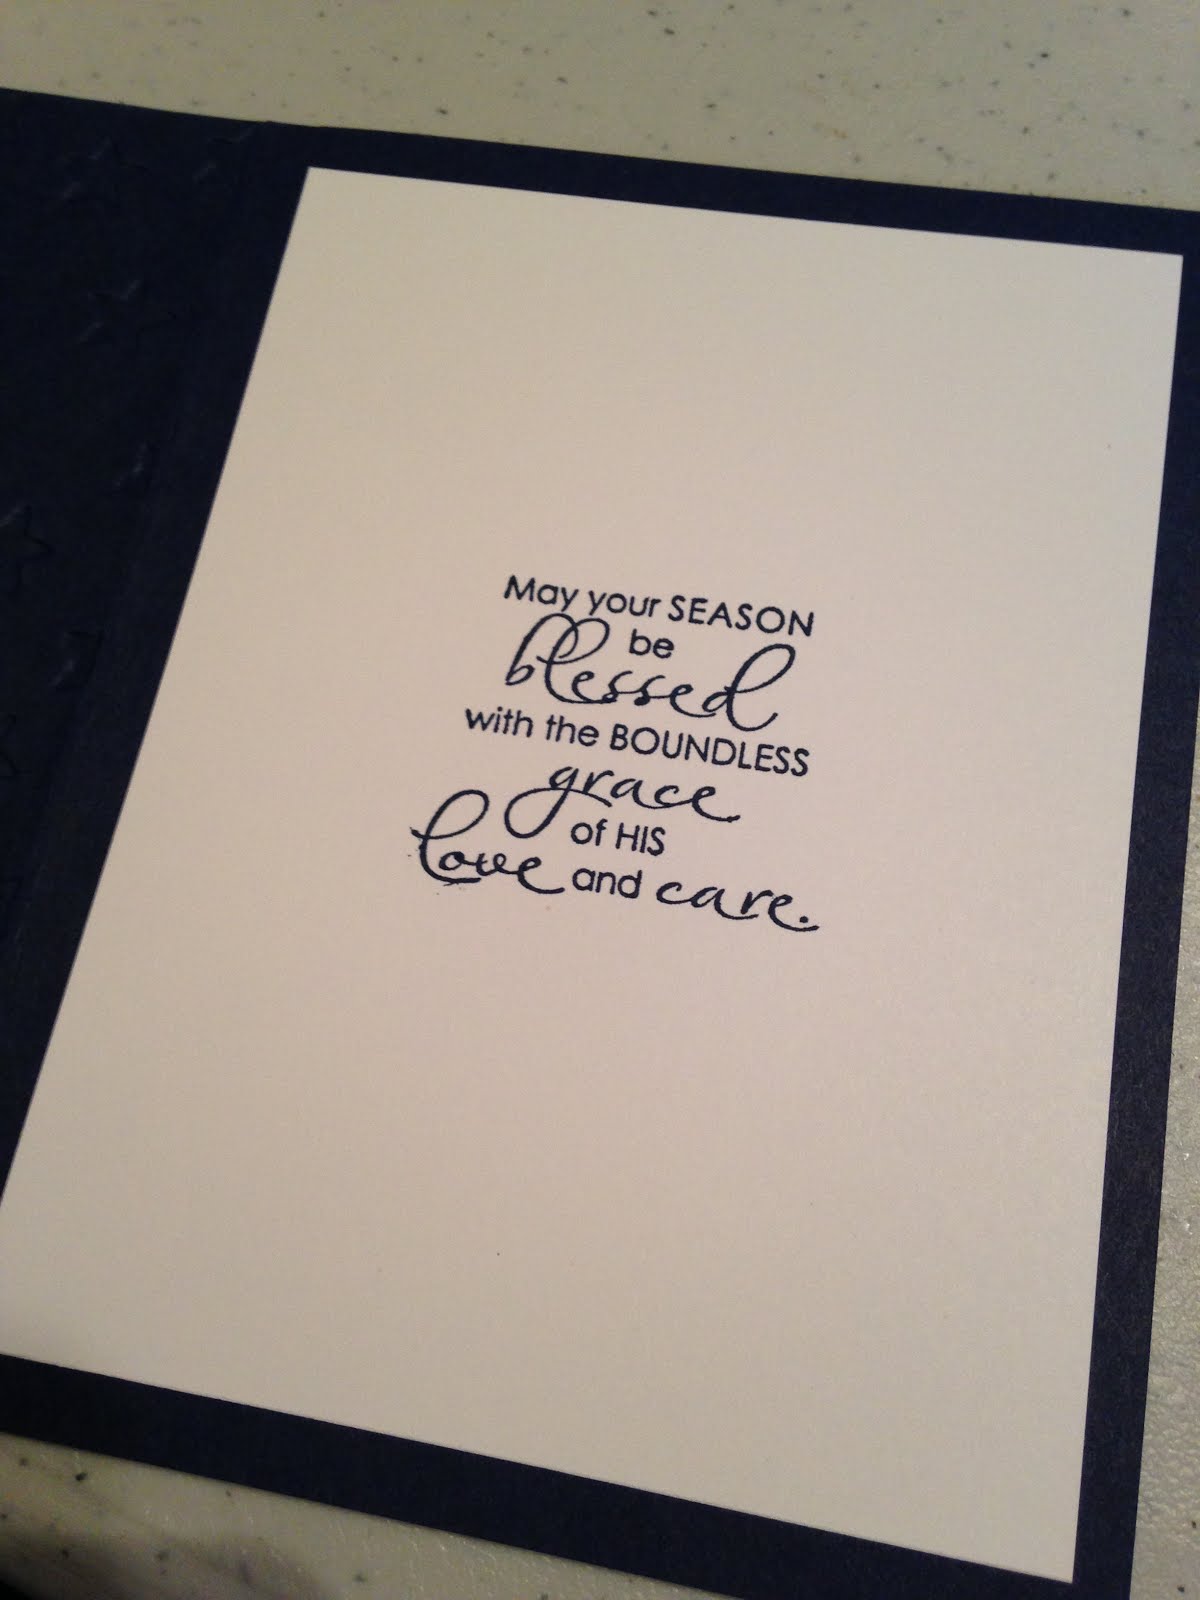 May your SEASON
be
blessed
with the BOUNDLESS
grace
of HIS
love and care.